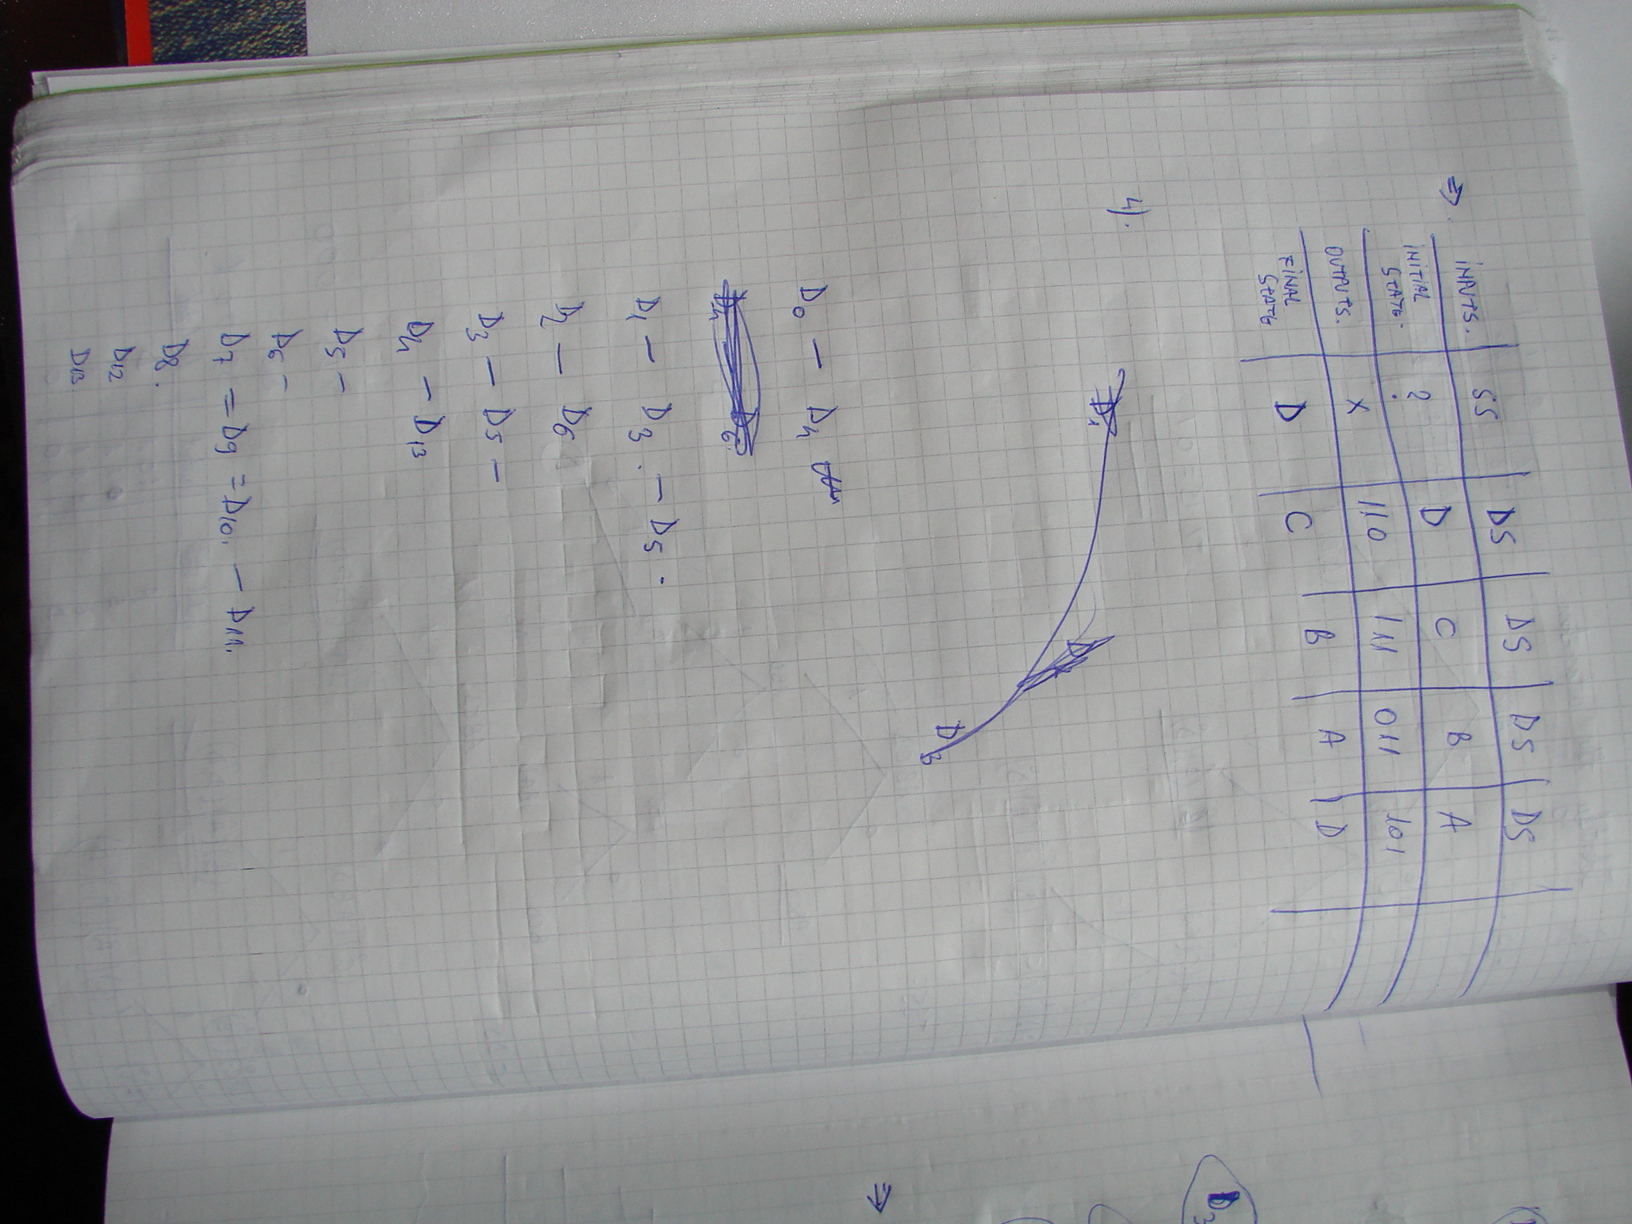 ⇒. INPUTS. SS DS DS DS DS
INITIAL STATE. ? D C B A
OUTPUTS. X 110 111 011 101
FINAL STATE D C B A D
4).
D0 — D4
D1 — D3. — D5.
D2 — D6
D3 — D5 —
D4 — D13
D5 —
D6 —
D7 = D9 = D10, — D11.
D8.
D12
D13
⇒